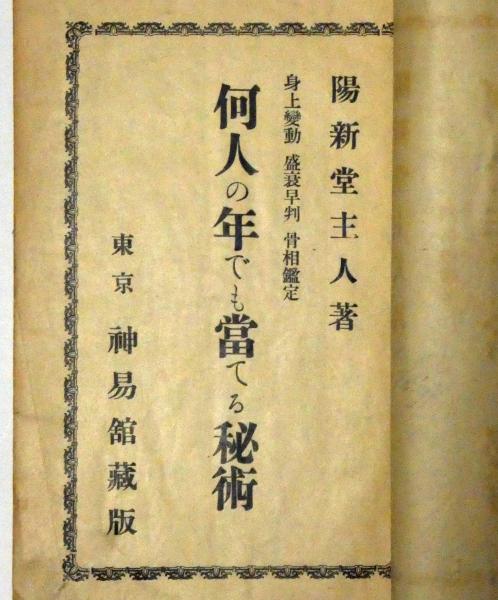 陽新堂主人著
身上變動 盛衰早判 骨相鑑定
何人の年でも當てる秘術
東京 神易舘藏版